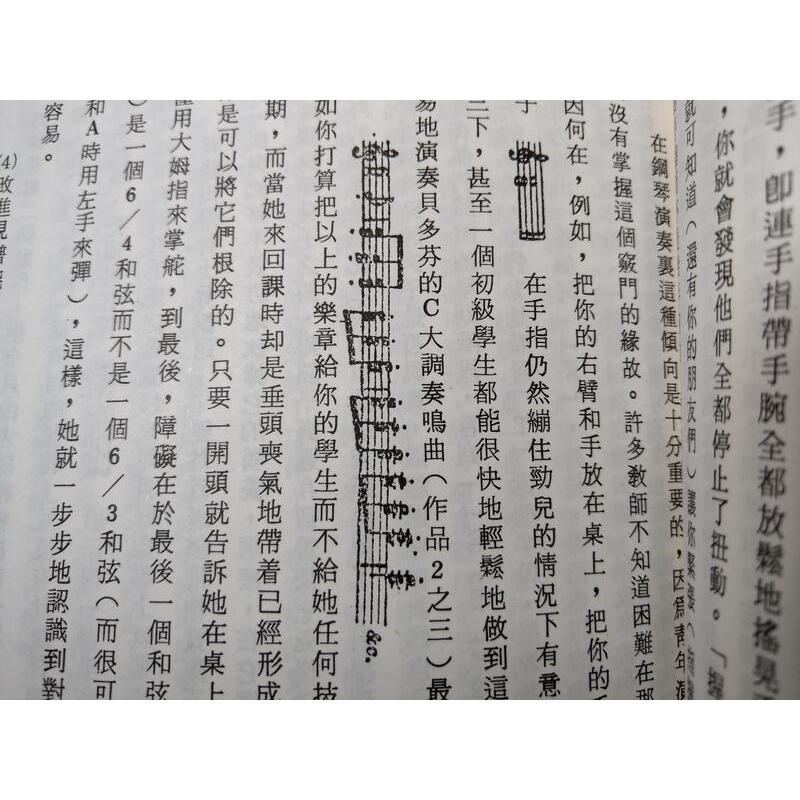 手，卽連手指帶手腕全都放鬆地搖晃
，你就會發現他們全都停止了扭動。「握
就可知道（還有你的朋友們）讓你緊張
在鋼琴演奏裏這種傾向是十分重要的，因爲青年演
沒有掌握這個竅門的緣故。許多教師不知道困難在那
因何在，例如，把你的右臂和手放在桌上，把你的
子 在手指仍然繃住勁兒的情況下有意
三下，甚至一個初級學生都能很快地輕鬆地做到這
易地演奏貝多芬的C大調奏鳴曲（作品2之三）最
&c.
如你打算把以上的樂章給你的學生而不給她任何技
期，而當她來回課時却是垂頭喪氣地帶着已經形成
是可以將它們根除的。只要一開頭就告訴她在桌上
用大姆指來掌舵，到最後，障礙在於最後一個和弦
）是一個6／4和弦而不是一個6／3和弦（而很可
和A時用左手來彈），這樣，她就一步步地認識到對
容易。
(4)改進視譜